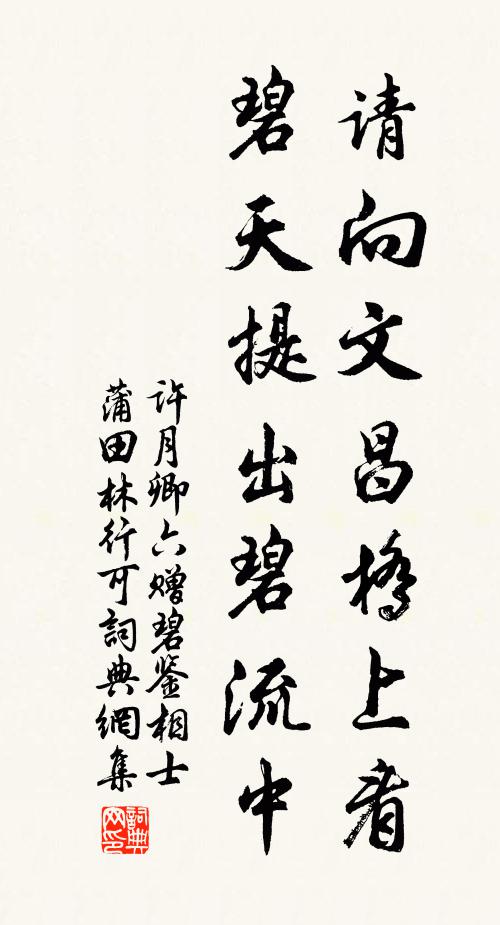 请向文昌橋上看
碧天提出碧流中
許月卿六赠碧鉴相士
蒲田林行可詞典網集
詞典
网印